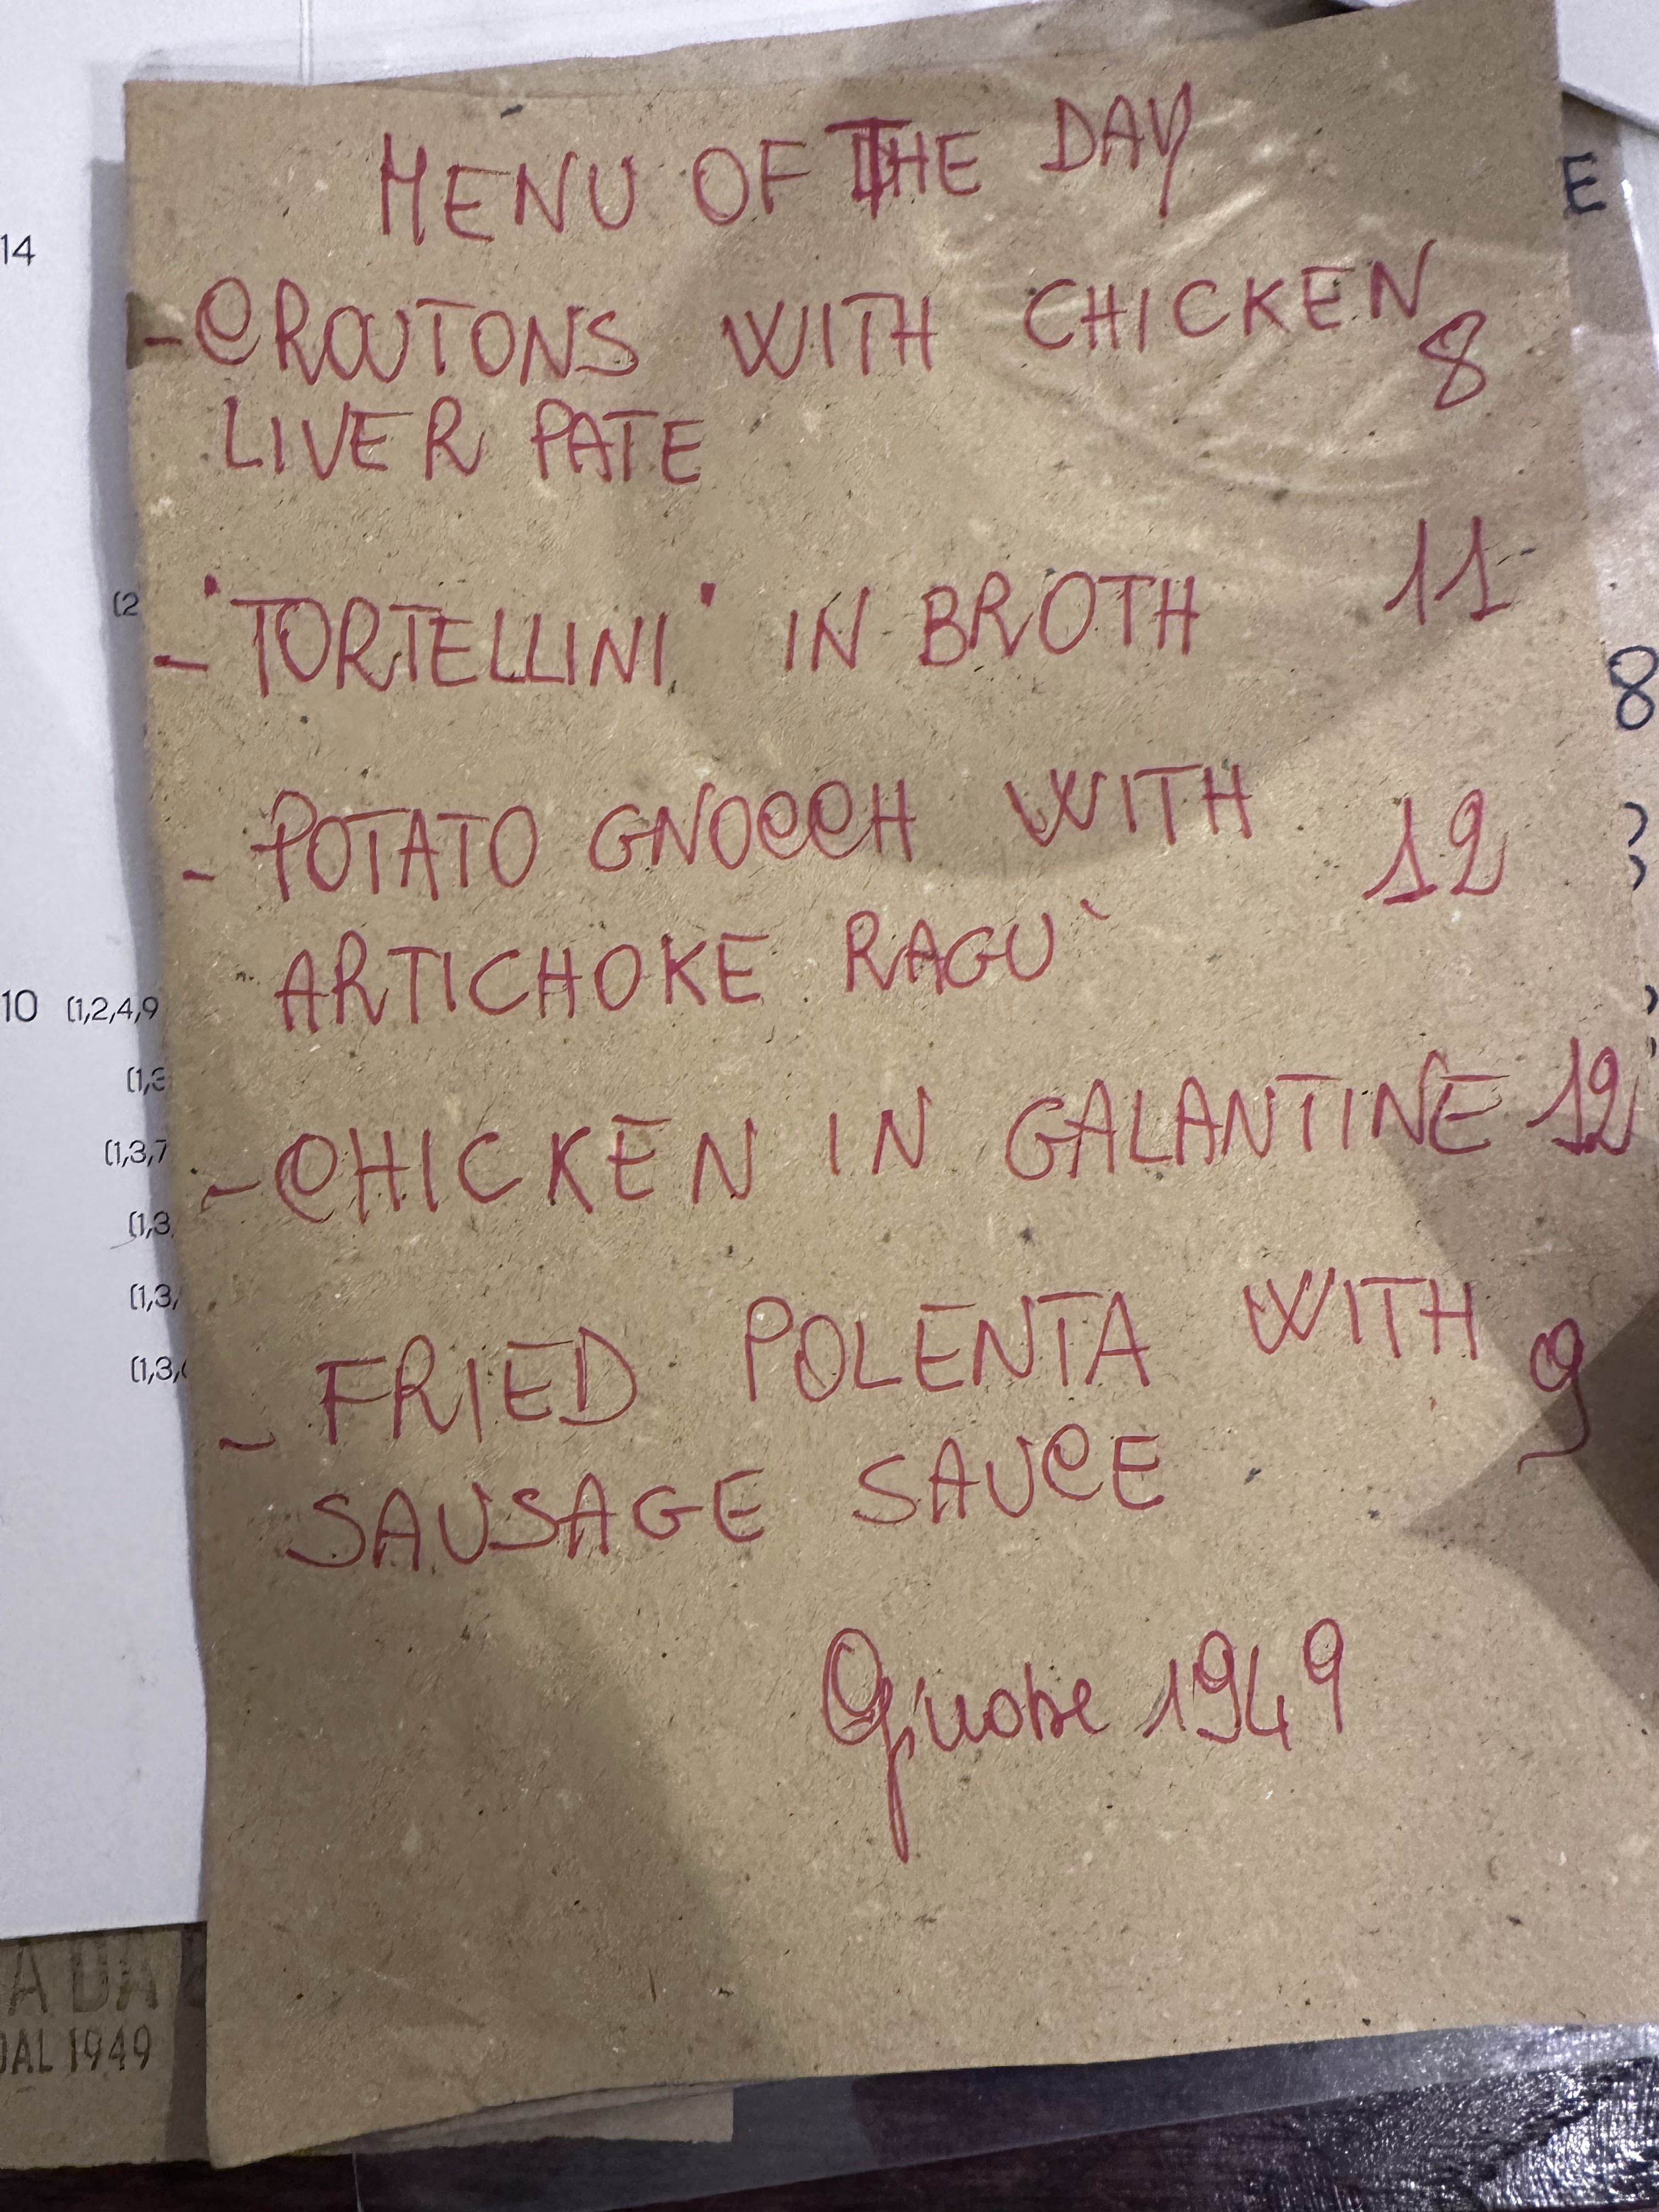 MENU OF THE DAY
- CROUTONS WITH CHICKEN 8
LIVER PATE
- "TORTELLINI" IN BROTH 11
- POTATO GNOCCH WITH 12
ARTICHOKE RAGU`
- CHICKEN IN GALANTINE 12
- FRIED POLENTA WITH 9
SAUSAGE SAUCE
1949
14
(2
10 (1,2,4,9
(1,3
(1,3,7
(1,3,
(1,3,
(1,3,
E
8
A DA
DAL 1949